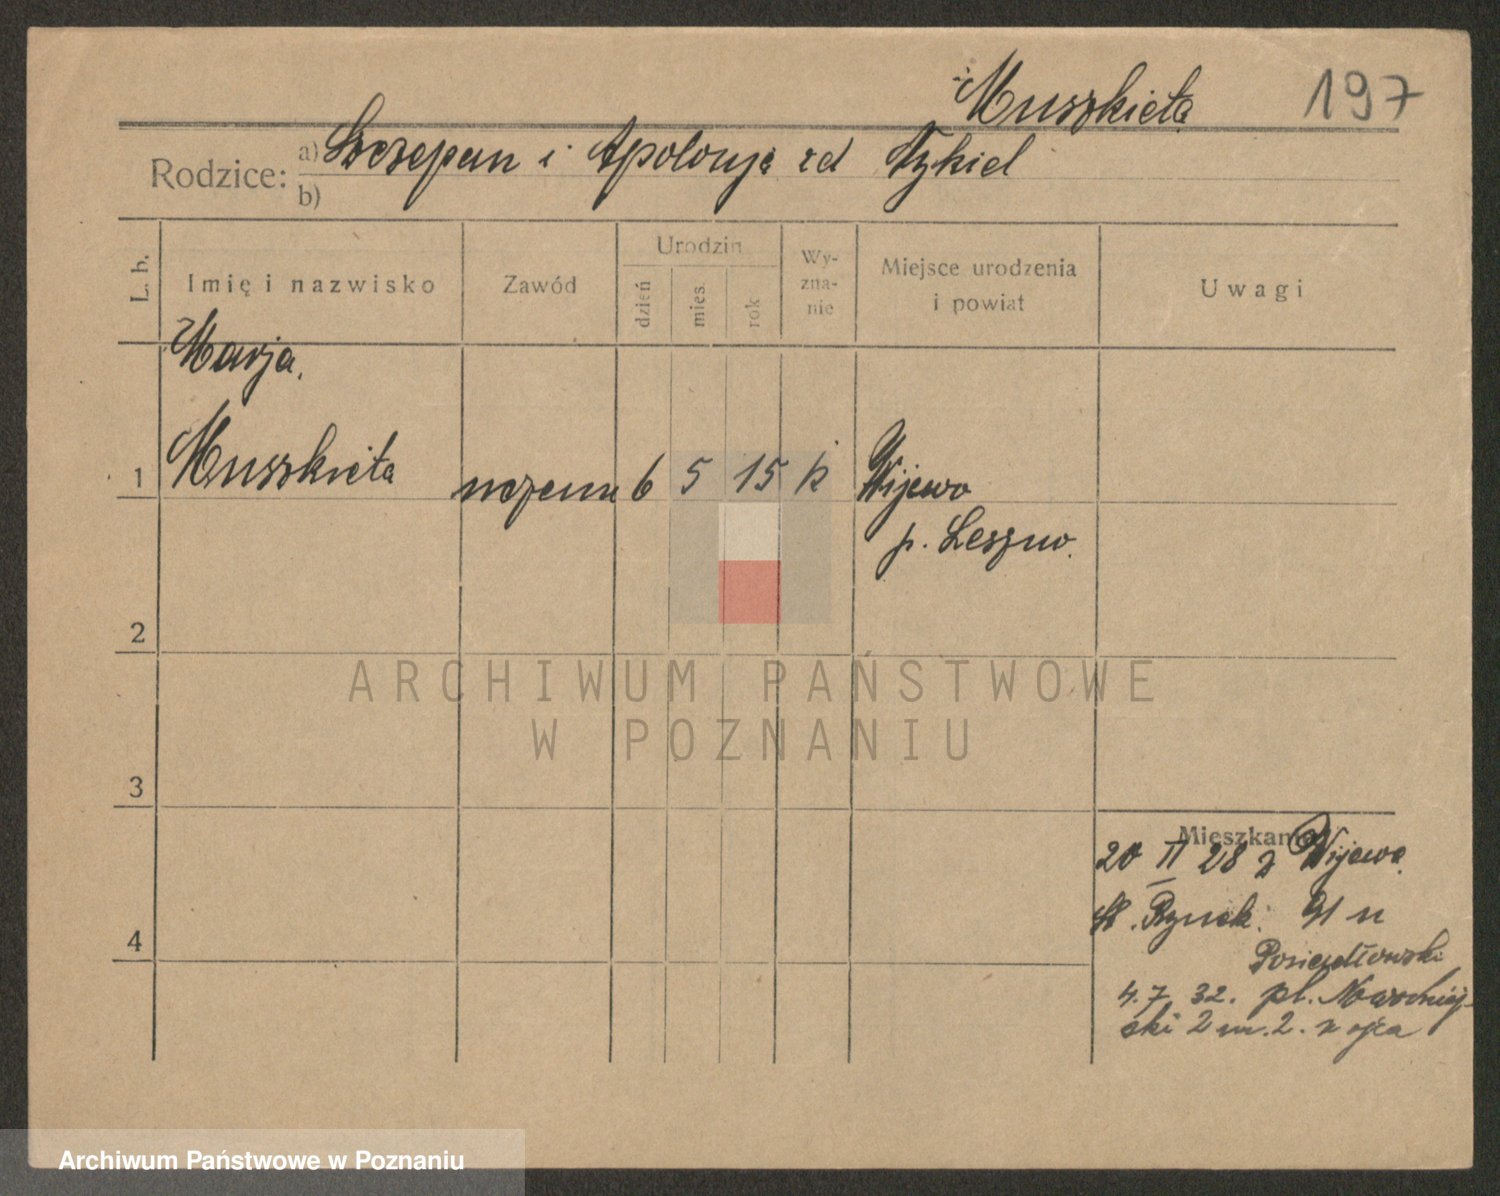 Muszkieta 197
Rodzice: a) Szczepan i Apolonja zd Tykiel
b)
L. b. Imię i nazwisko Zawód Urodzin dzień mies. rok Wyznanie Miejsce urodzenia i powiat Uwagi
Marja.
1 Muszkieta uczenn 6 5 15 k Wijewo
p. Leszno.
2
ARCHIWUM PAŃSTWOWE
W POZNANIU
3
Mieszkanie
20 II 28 z Wijewo.
St. Rynek. 91 u
4
4. 7. 32. pl.
ski 2 m. 2. u ojca
Archiwum Państwowe w Poznaniu